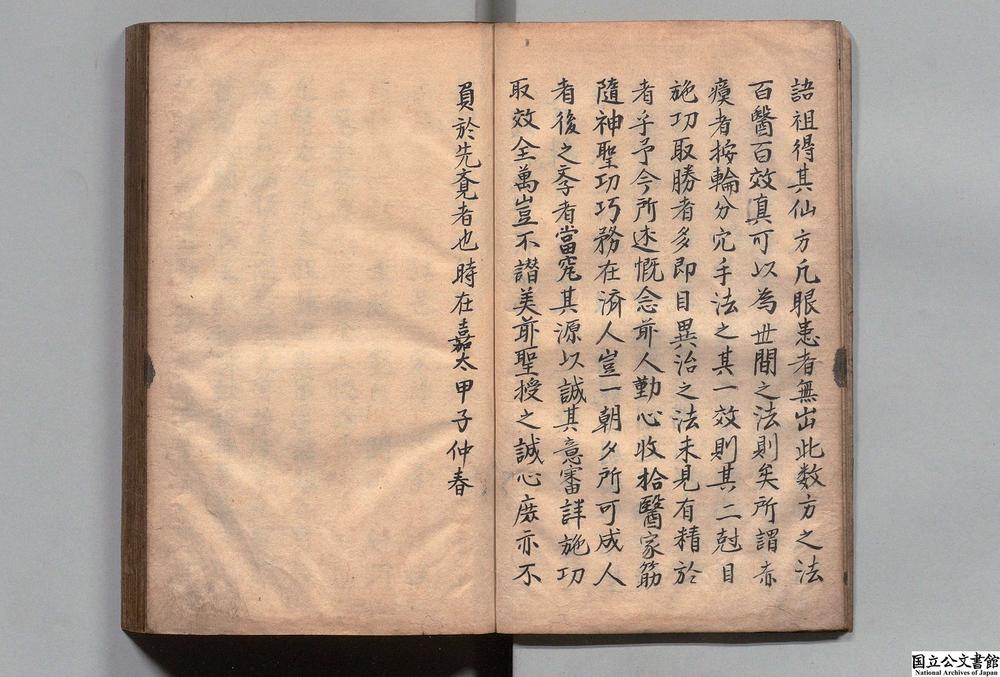 詰祖得其仙方凡眼患者無出此数方之法
百醫百效真可以為世間之法則矣所謂赤
瘼者按輪分穴手法之其一效則其二尅目
施功取勝者多即目異治之法未見有精於
者乎予今所述慨念前人勤心收拾醫家筋
隨神聖功巧務在済人豈一朝夕所可成人
者後之孝者當究其源以誠其意審詳施功
取效全萬豈不譛美前聖授之誠心庻亦不
負於先覔者也時在嘉太甲子仲春
国立公文書館
National Archives of Japan